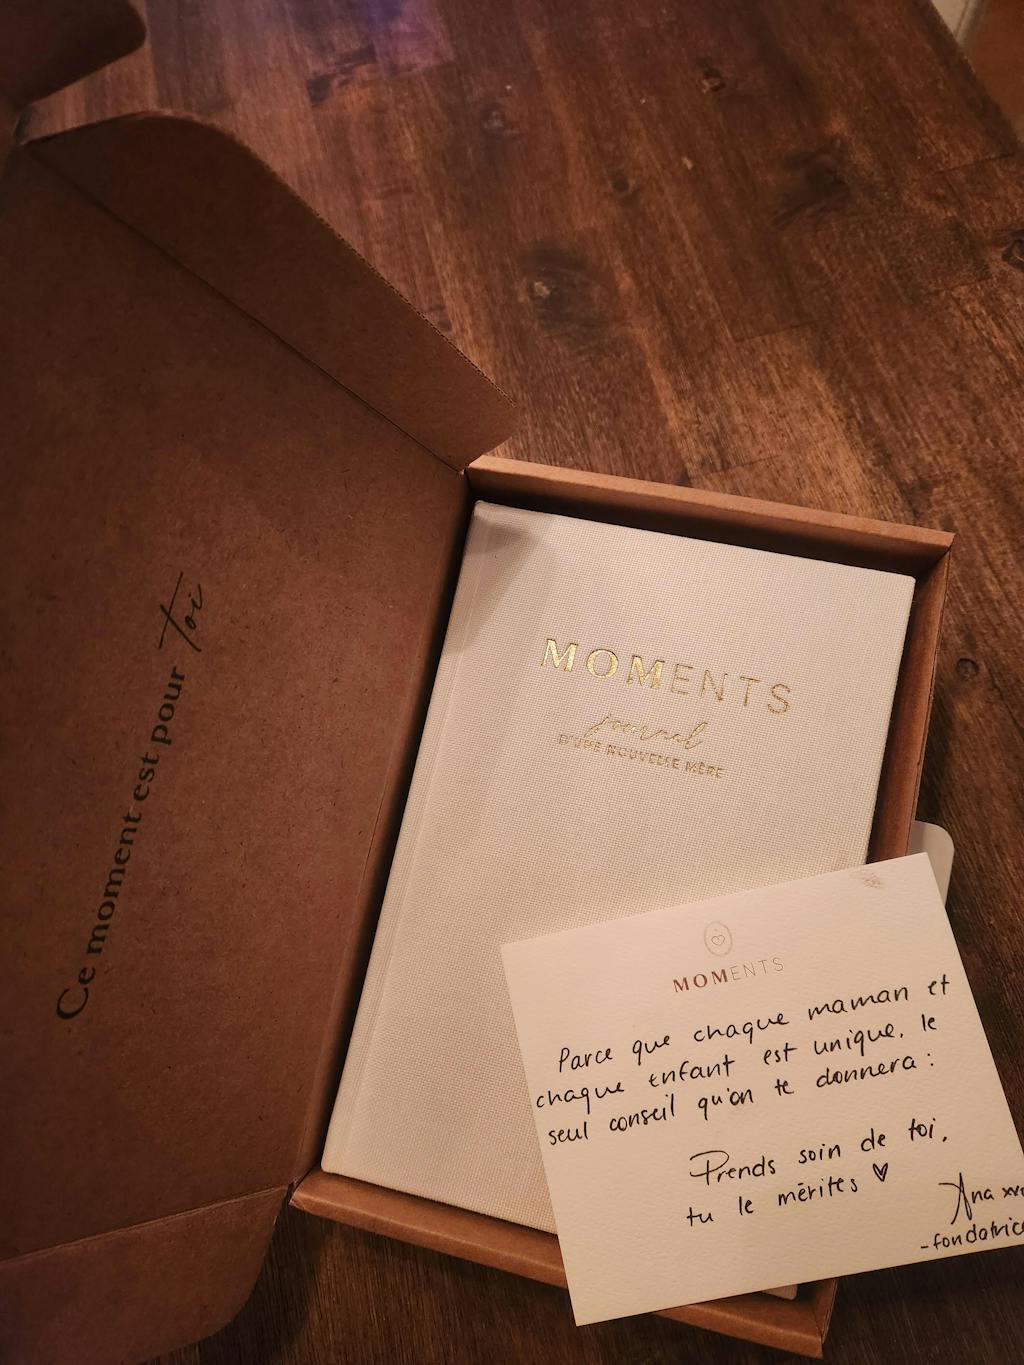 Ce moment est pour toi
MOMENTS
journal
D'UNE NOUVELLE MÈRE
MOMENTS
Parce que chaque maman et
chaque enfant est unique, le
seul conseil qu'on te donnera :
Prends soin de toi,
tu le mérites ♥
Ana